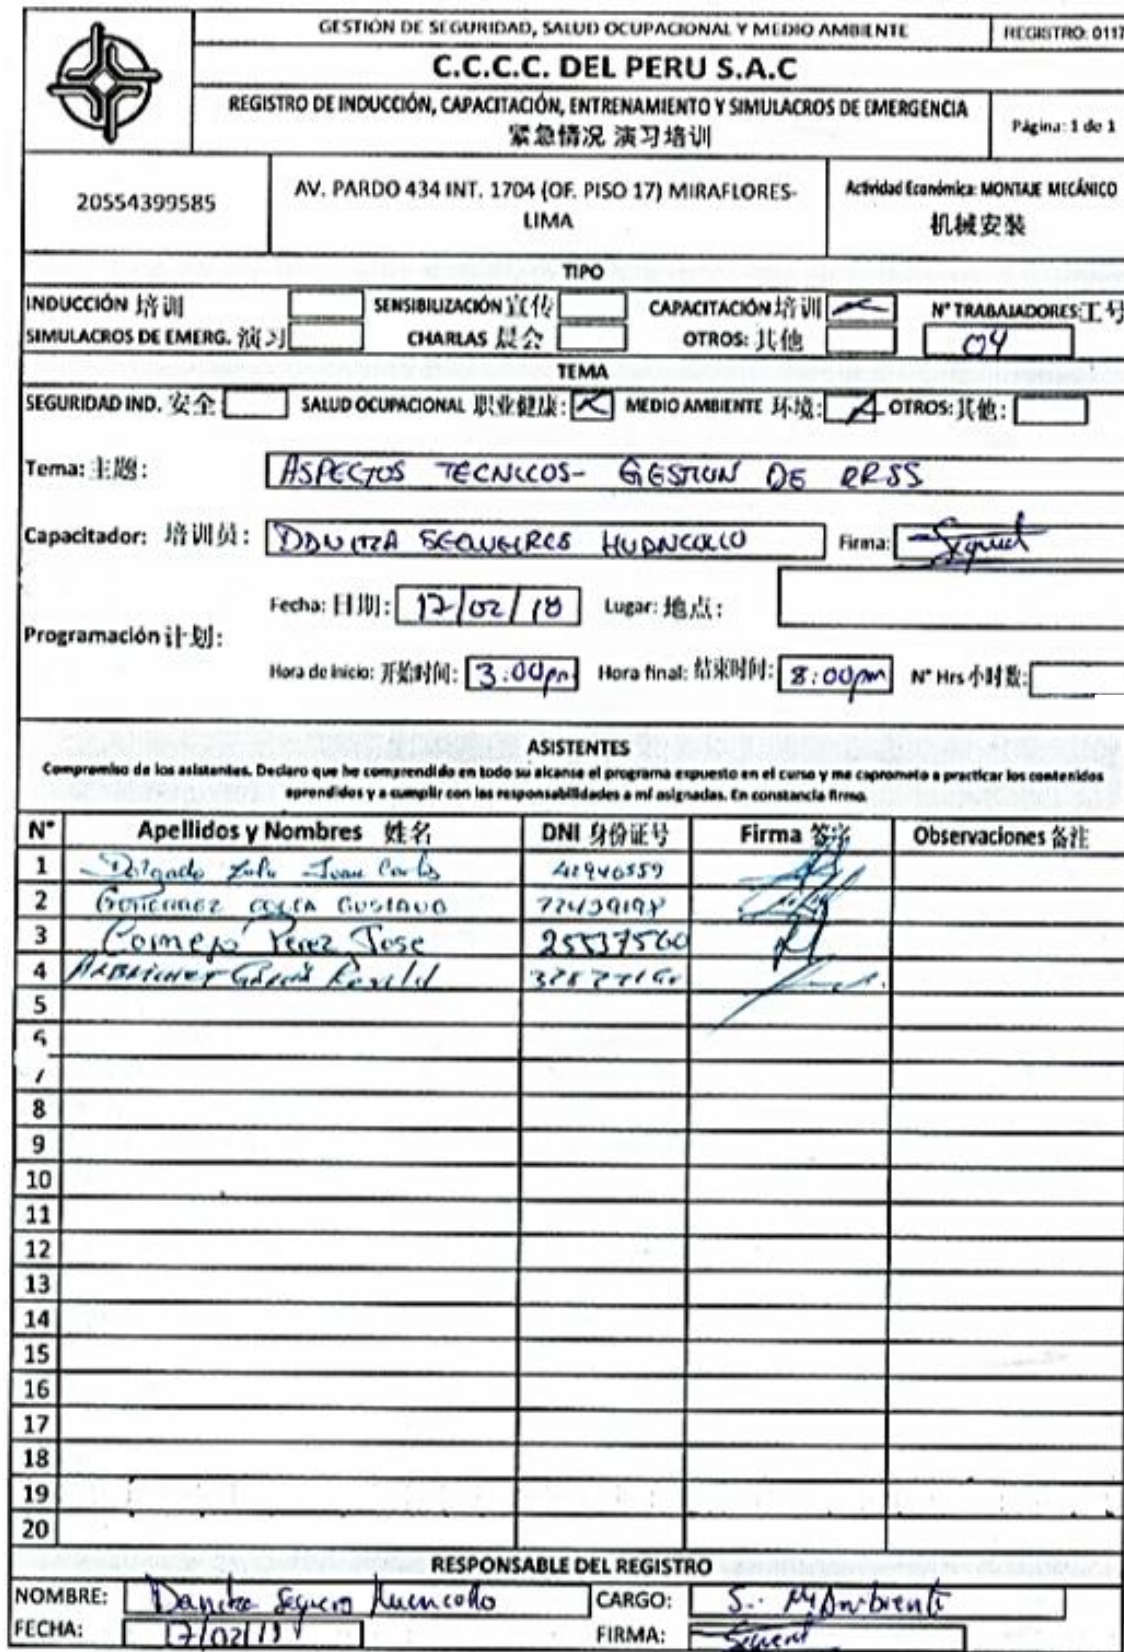 GESTIÓN DE SEGURIDAD, SALUD OCUPACIONAL Y MEDIO AMBIENTE
REGISTRO: 0117
C.C.C.C. DEL PERU S.A.C
REGISTRO DE INDUCCIÓN, CAPACITACIÓN, ENTRENAMIENTO Y SIMULACROS DE EMERGENCIA
紧急情况 演习培训
Página: 1 de 1
20554399585
AV. PARDO 434 INT. 1704 (OF. PISO 17) MIRAFLORES-
LIMA
Actividad Económica: MONTAJE MECÁNICO
机械安装
TIPO
INDUCCIÓN 培训 SENSIBILIZACIÓN 宣传 CAPACITACIÓN 培训 N° TRABAJADORES: 工号
SIMULACROS DE EMERG. 演习 CHARLAS 晨会 OTROS: 其他 04
TEMA
SEGURIDAD IND. 安全 SALUD OCUPACIONAL 职业健康: MEDIO AMBIENTE 环境: OTROS: 其他:
Tema: 主题: ASPECTOS TECNICOS- GESTION DE RRSS
Capacitador: 培训员: Firma:
Fecha: 日期: 17/02/18 Lugar: 地点:
Programación 计划:
Hora de inicio: 开始时间: 3:00pm Hora final: 结束时间: 8:00pm N° Hrs 小时数:
ASISTENTES
Compromiso de los asistentes. Declaro que he comprendido en todo su alcanse el programa expuesto en el curso y me caprometo a practicar los contenidos
aprendidos y a cumplir con las responsabilidades a mí asignadas. En constancia firmo.
N° Apellidos y Nombres 姓名 DNI 身份证号 Firma 签字 Observaciones 备注
1 Delgado Juan Carlos
2 Gustavo
3 Cornejo Perez Jose 25537560
4
5
6
7
8
9
10
11
12
13
14
15
16
17
18
19
20
RESPONSABLE DEL REGISTRO
NOMBRE: CARGO: S. M Ambiente
FECHA: 17/02/18 FIRMA: